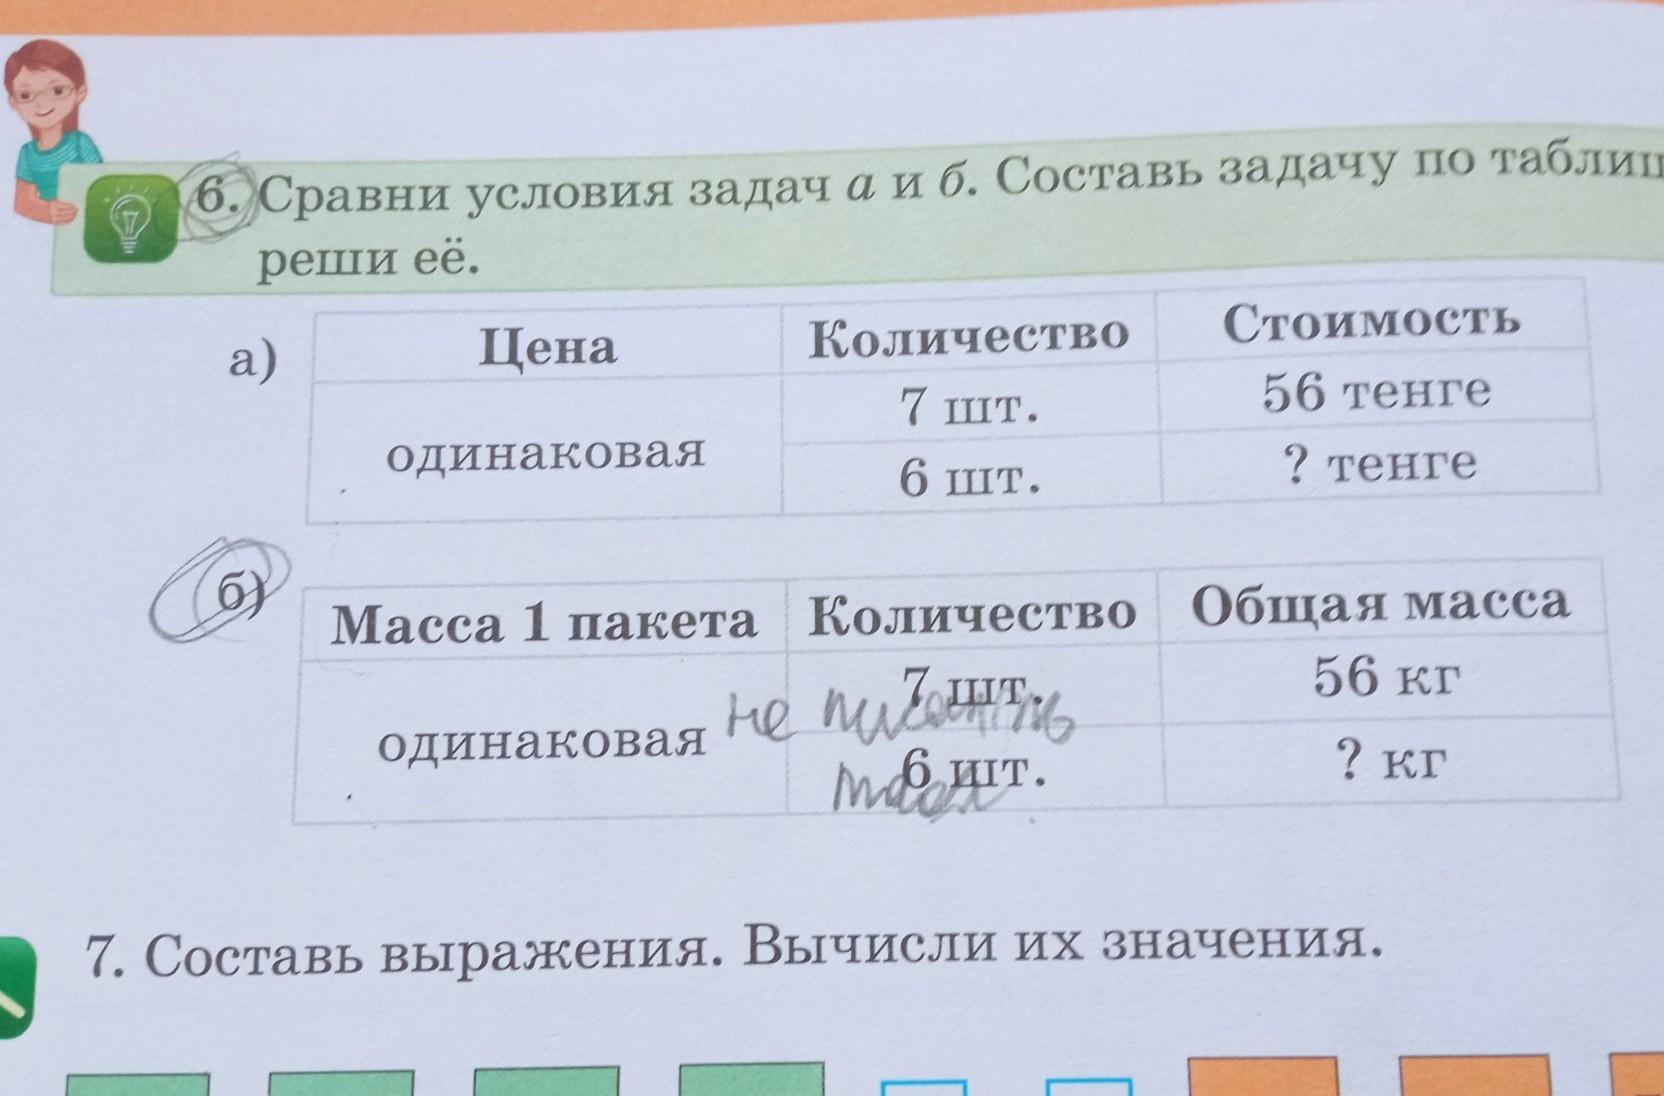 6. Сравни условия задач а и б. Составь задачу по таблиц
реши её.
а)
Цена Количество Стоимость
одинаковая
7 шт. 56 тенге
6 шт. ? тенге
б)
Масса 1 пакета Количество Общая масса
одинаковая
7 шт. 56 кг
не писать
6 шт. ? кг
7. Составь выражения. Вычисли их значения.